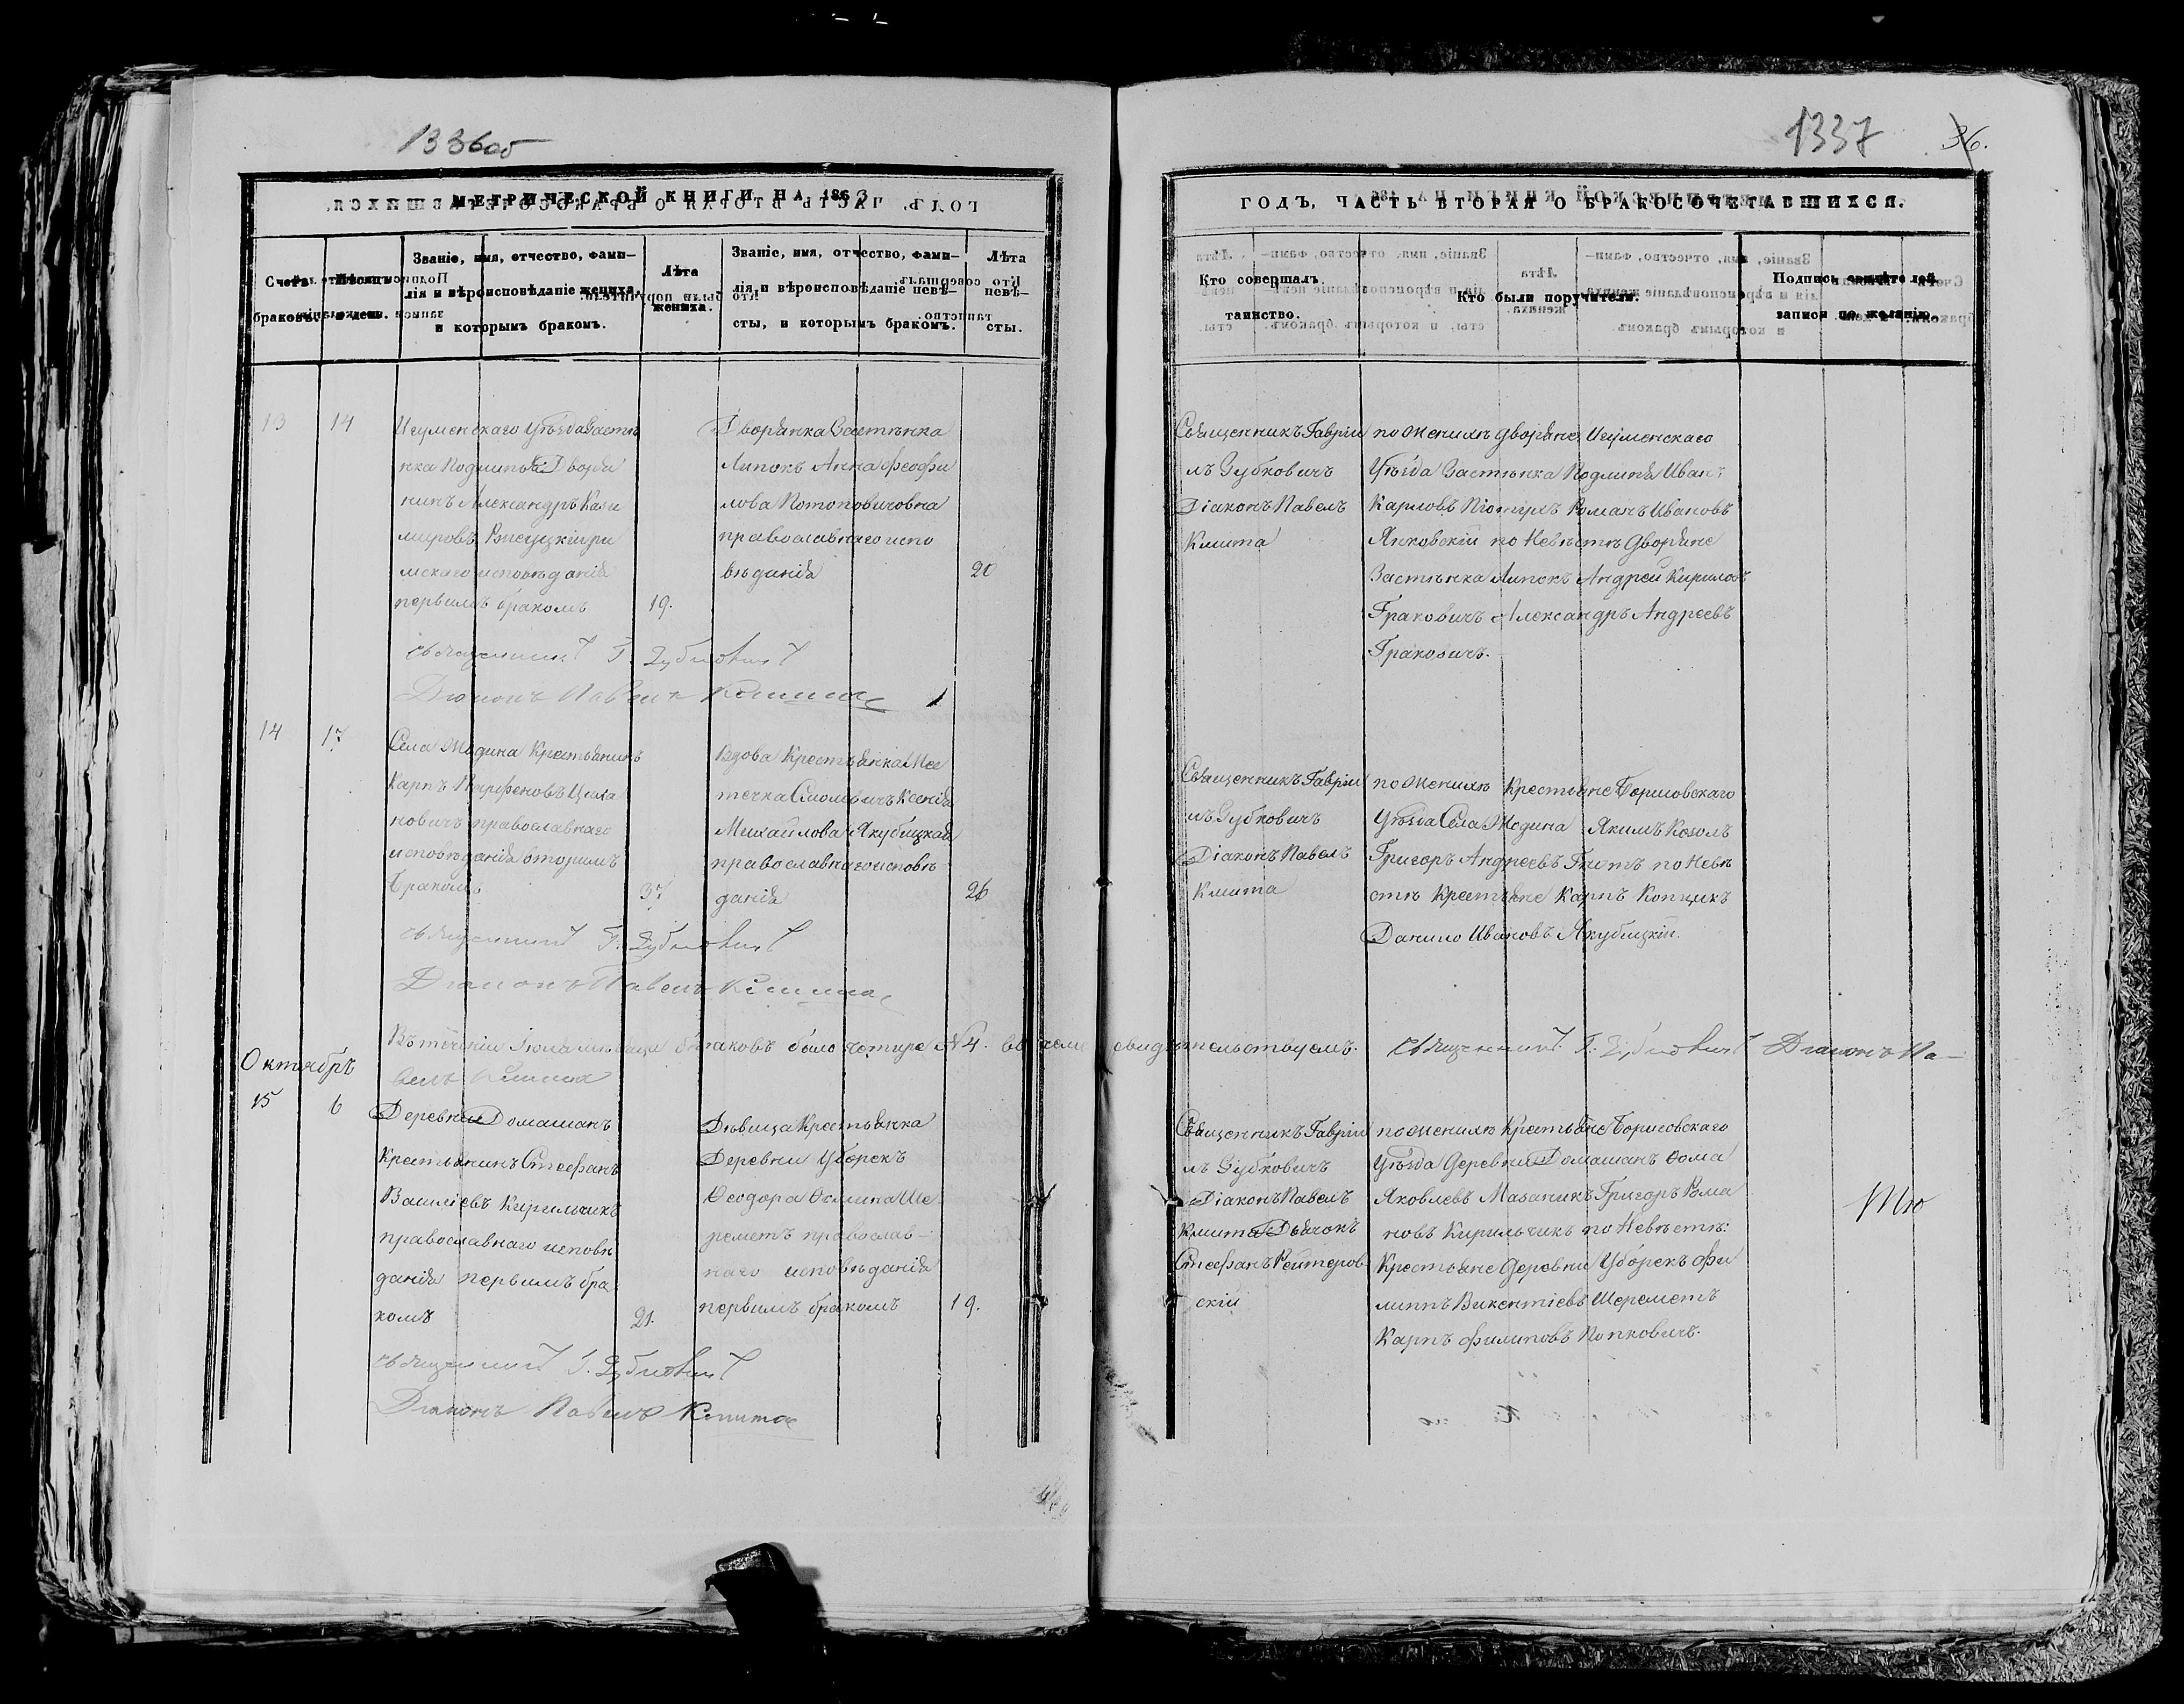 1336об
МЕТРИЧЕСКОЙ КНИГИ НА 1863
Счетъ браковъ.
Мѣсяцъ и день.
Званіе, имя, отчество, фами-
лія и вѣроисповѣданіе жениха,
и которымъ бракомъ.
Лѣта
жениха.
Званіе, имя, отчество, фами-
лія и вѣроисповѣданіе невѣ-
сты, и которымъ бракомъ.
Лѣта
невѣ-
сты.
13
14
Игуменскаго Уѣзда Застѣ
нка Подлипья Дворя
нинъ Александръ Кази
мировъ ри
мскаго исповѣданія
первымъ бракомъ
19.
Дворянка Застѣнка
Липокъ Анна Феофи
лова Потоповичовна
православнаго испо
вѣданія
20
Священникъ Г. Зубковичъ
Діаконъ Павелъ Кмита
14
17
Села Жодина Крестьянинъ
Карпъ Парфеновъ Цыка
новичъ православнаго
исповѣданія вторымъ
бракомъ
37
Вдова Крестьянка Мѣс
течка Смолевичъ Ксенія
Михайлова Якубицкая
православнаго исповѣ
данія
26
Священникъ Г. Зубковичъ
Діаконъ Павелъ Кмита
Въ теченіи Іюля мѣсяца браковъ было четыре №4. въ чемъ свидѣтельствуемъ. Священникъ Г. Зубковичъ Діаконъ Па-
велъ Кмита
Октябрь
15
6
Деревни Домашанъ
Крестьянинъ Стефанъ
Василіевъ Кирильчикъ
православнаго исповѣ
данія первымъ бра
комъ
21.
Дѣвица Крестьянка
Деревни Уборекъ
Феодора Фомина Ше
реметъ православ-
наго исповѣданія
первымъ бракомъ
19.
Священникъ Г. Зубковичъ
Діаконъ Павелъ Кмита
1337
36.
ГОДЪ, ЧАСТЬ ВТОРАЯ О БРАКОСОЧЕТАВШИХСЯ.
Кто совершалъ
таинство.
Кто были поручители.
Подпись свидѣтелей
записи по желанію.
Священникъ Гаврiи
лъ Зубковичъ
Діаконъ Павелъ
Кмита
по Женихѣ дворяне Игуменскаго
Уѣзда Застѣнка Подлипья Иванъ
Карловъ Романъ Ивановъ
Янковскій по Невѣстѣ Дворяне
Застѣнка Липокъ Андрей Кириловъ
Граковичъ Александръ Андреевъ
Граковичъ.
Священникъ Гаврiи
лъ Зубковичъ
Діаконъ Павелъ
Кмита
по Женихѣ Крестьяне Борисовскаго
Уѣзда Села Жодина Якимъ Козолъ
Григоръ Андреевъ Гнетъ по Невѣ
стѣ Крестьяне Карпъ Копцикъ
Данило Ивановъ Якубицкій.
Священникъ Гаврiи
лъ Зубковичъ
Діаконъ Павелъ
Кмита Дьячокъ
Стефанъ Рейтеров
скій
по Женихѣ Крестьяне Борисовскаго
Уѣзда Деревни Домашанъ Фома
Яковлевъ Мазаникъ Григоръ Рома
новъ Кирильчикъ по Невѣстѣ:
Крестьяне Деревни Уборекъ Фи
липпъ Викентіевъ Шереметъ
Карпъ Филиповъ Попковичъ.